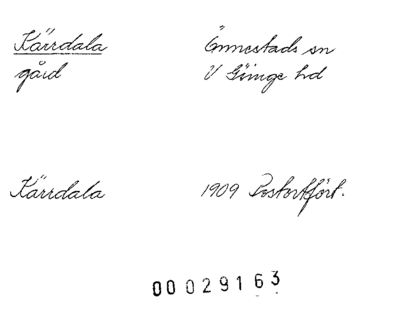 Kärrdala Önnestads sn
gård V Göinge hd
Kärrdala 1909 Postortförl.
00029163